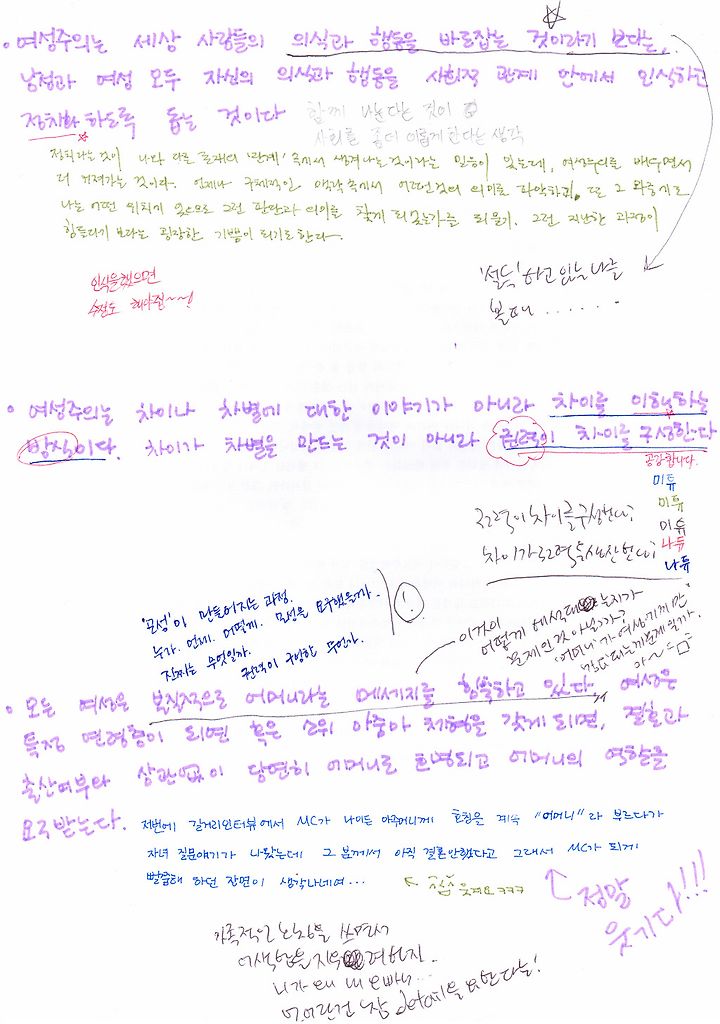 • 여성주의는 세상 사람들의 의식과 행동을 바로잡는 것이라기 보다는,
남성과 여성 모두 자신의 의식과 행동을 사회적 관계 안에서 인식하고
정치화하도록 돕는 것이다 함께 나눈다는 것이
사회를 좀더 이롭게한다는 생각
정치라는것이 나와 다른 존재의 '관계' 속에서 생겨나는것이라는 믿음이 있는데, 여성주의를 배우면서
더 커져가는것이다. 언제나 구체적인 맥락속에서 어떤것의 의미를 파악하고, 또 그 와중에도
나는 어떤 위치에 있으므로 그런 판단과 의미를 찾게 되었는가를 되물기. 그런 지난한 과정이
힘들다기 보다는 굉장한 기쁨이 되기도한다.
인식을했으면
수정도 해야죠~~!
'설득'하고 있는 나를
볼때......
• 여성주의는 차이나 차별에 대한 이야기가 아니라 차이를 이해하는
방식이다. 차이가 차별을 만드는 것이 아니라 권력이 차이를 구성한다
공감합니다.
미듀
미듀
미듀
나듀
나듀
권력이 차이를 구성한다;
차이가 권력을 생산한다;
'모성'이 만들어지는 과정.
누가. 언제. 어떻게. 모성을 요구했을까.
진짜는 무엇일까. 권력이 구성한 무언가.
!
이것이
어떻게 해석되는지가
문제인것 아닐까?
'어머니'가 여성기게만
• 모든 여성은 복잡적으로 어머니라는 메세지를 함축하고 있다. 여성은
특정 연령층이 되면 혹은 소위 아줌마 체형을 갖게 되면, 결혼과
출산여부와 상관없이 당연히 어머니로 호명되고 어머니의 역할을
요구받는다.
저번에 길거리인터뷰에서 MC가 나이든 아주머니께 호칭을 계속 "어머니"라 부르다가
자녀 질문얘기가 나왔는데 그 분께서 아직 결혼안했다고 그래서 MC가 되게
뻘쭘해 하던 장면이 생각나네여...
웃겨요ㅋㅋㅋ
정말
웃기다!!!
가족적인 호칭을 쓰면서
어색함을 지우려하지.
니가 왜 내 오빠니...
detail을 요한다는!